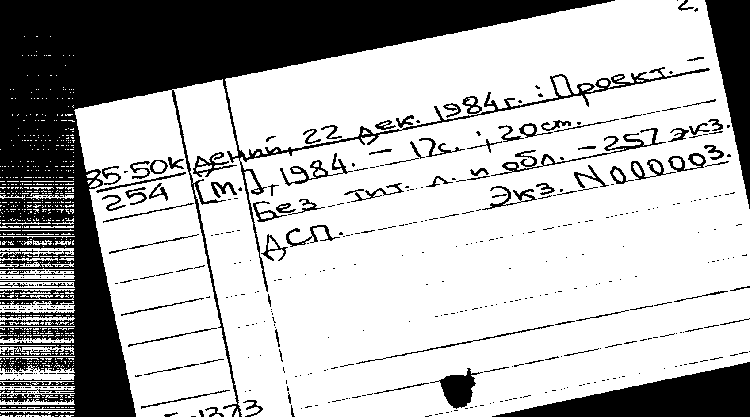 2.
85-50к дений, 22 дек. 1984г. : Проект. –
254 [М.], 1984. – 17с. ; 20см.
Без тит. л. и обл. – 257 экз.
ДСП. Экз. N000003.
1373